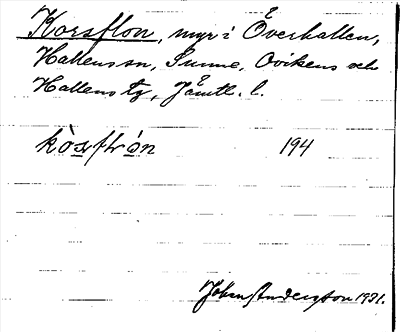 Korsflon, myr i Överhallen,
Hallens sn, Sunne, Ovikens och
Hallens tg, Jämtl. l.
194
John Andersson 1931.